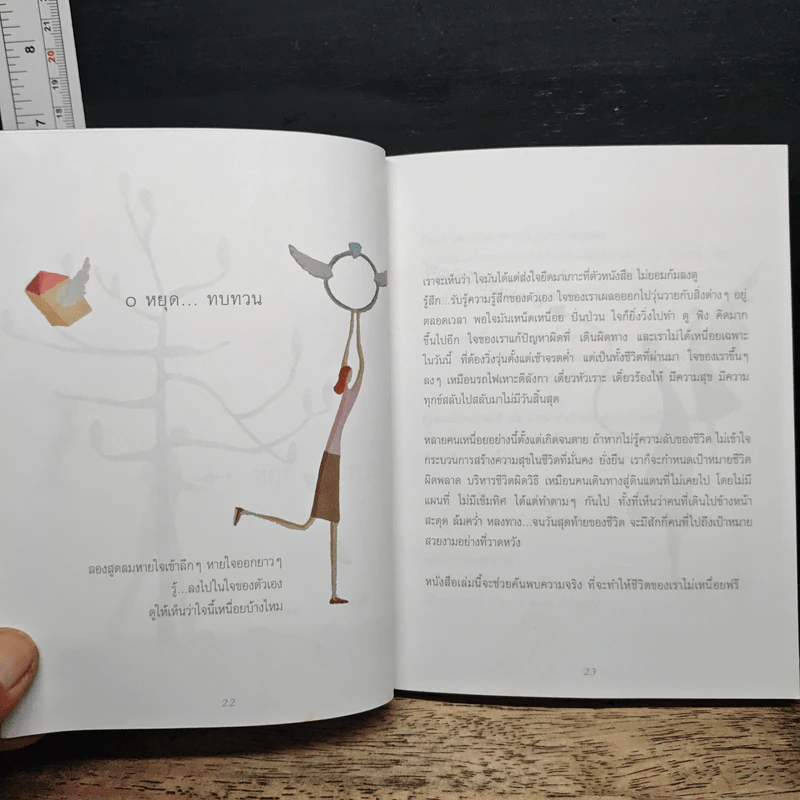 8
7
21
20
19
18
๐ หยุด... ทบทวน
ลองสูดลมหายใจเข้าลึกๆ หายใจออกยาวๆ
รู้...ลงไปในใจของตัวเอง
ดูให้เห็นว่าใจนี้เหนื่อยบ้างไหม
22
เราจะเห็นว่า ใจมันได้แต่ส่งใจยึดมาเกาะที่ตัวหนังสือ ไม่ยอมก้มลงดู
รู้สึก...รับรู้ความรู้สึกของตัวเอง ใจของเราเผลอออกไปวุ่นวายกับสิ่งต่างๆ อยู่
ตลอดเวลา พอใจมันเหน็ดเหนื่อย ปั่นป่วน ใจก็ยิ่งวิ่งไปทำ ดู ฟัง คิดมาก
ขึ้นไปอีก ใจของเราแก้ปัญหาผิดที่ เดินผิดทาง และเราไม่ได้เหนื่อยเฉพาะ
ในวันนี้ ที่ต้องวิ่งวุ่นตั้งแต่เช้าจรดค่ำ แต่เป็นทั้งชีวิตที่ผ่านมา ใจของเราขึ้นๆ
ลงๆ เหมือนรถไฟเหาะตีลังกา เดี๋ยวหัวเราะ เดี๋ยวร้องไห้ มีความสุข มีความ
ทุกข์สลับไปสลับมาไม่มีวันสิ้นสุด
หลายคนเหนื่อยอย่างนี้ตั้งแต่เกิดจนตาย ถ้าหากไม่รู้ความลับของชีวิต ไม่เข้าใจ
กระบวนการสร้างความสุขในชีวิตที่มั่นคง ยั่งยืน เราก็จะกำหนดเป้าหมายชีวิต
ผิดพลาด บริหารชีวิตผิดวิธี เหมือนคนเดินทางสู่ดินแดนที่ไม่เคยไป โดยไม่มี
แผนที่ ไม่มีเข็มทิศ ได้แต่ทำตามๆ กันไป ทั้งที่เห็นว่าคนที่เดินไปข้างหน้า
สะดุด ล้มคว่ำ หลงทาง...จนวันสุดท้ายของชีวิต จะมีสักกี่คนที่ไปถึงเป้าหมาย
สวยงามอย่างที่วาดหวัง
หนังสือเล่มนี้จะช่วยค้นพบความจริง ที่จะทำให้ชีวิตของเราไม่เหนื่อยฟรี
23